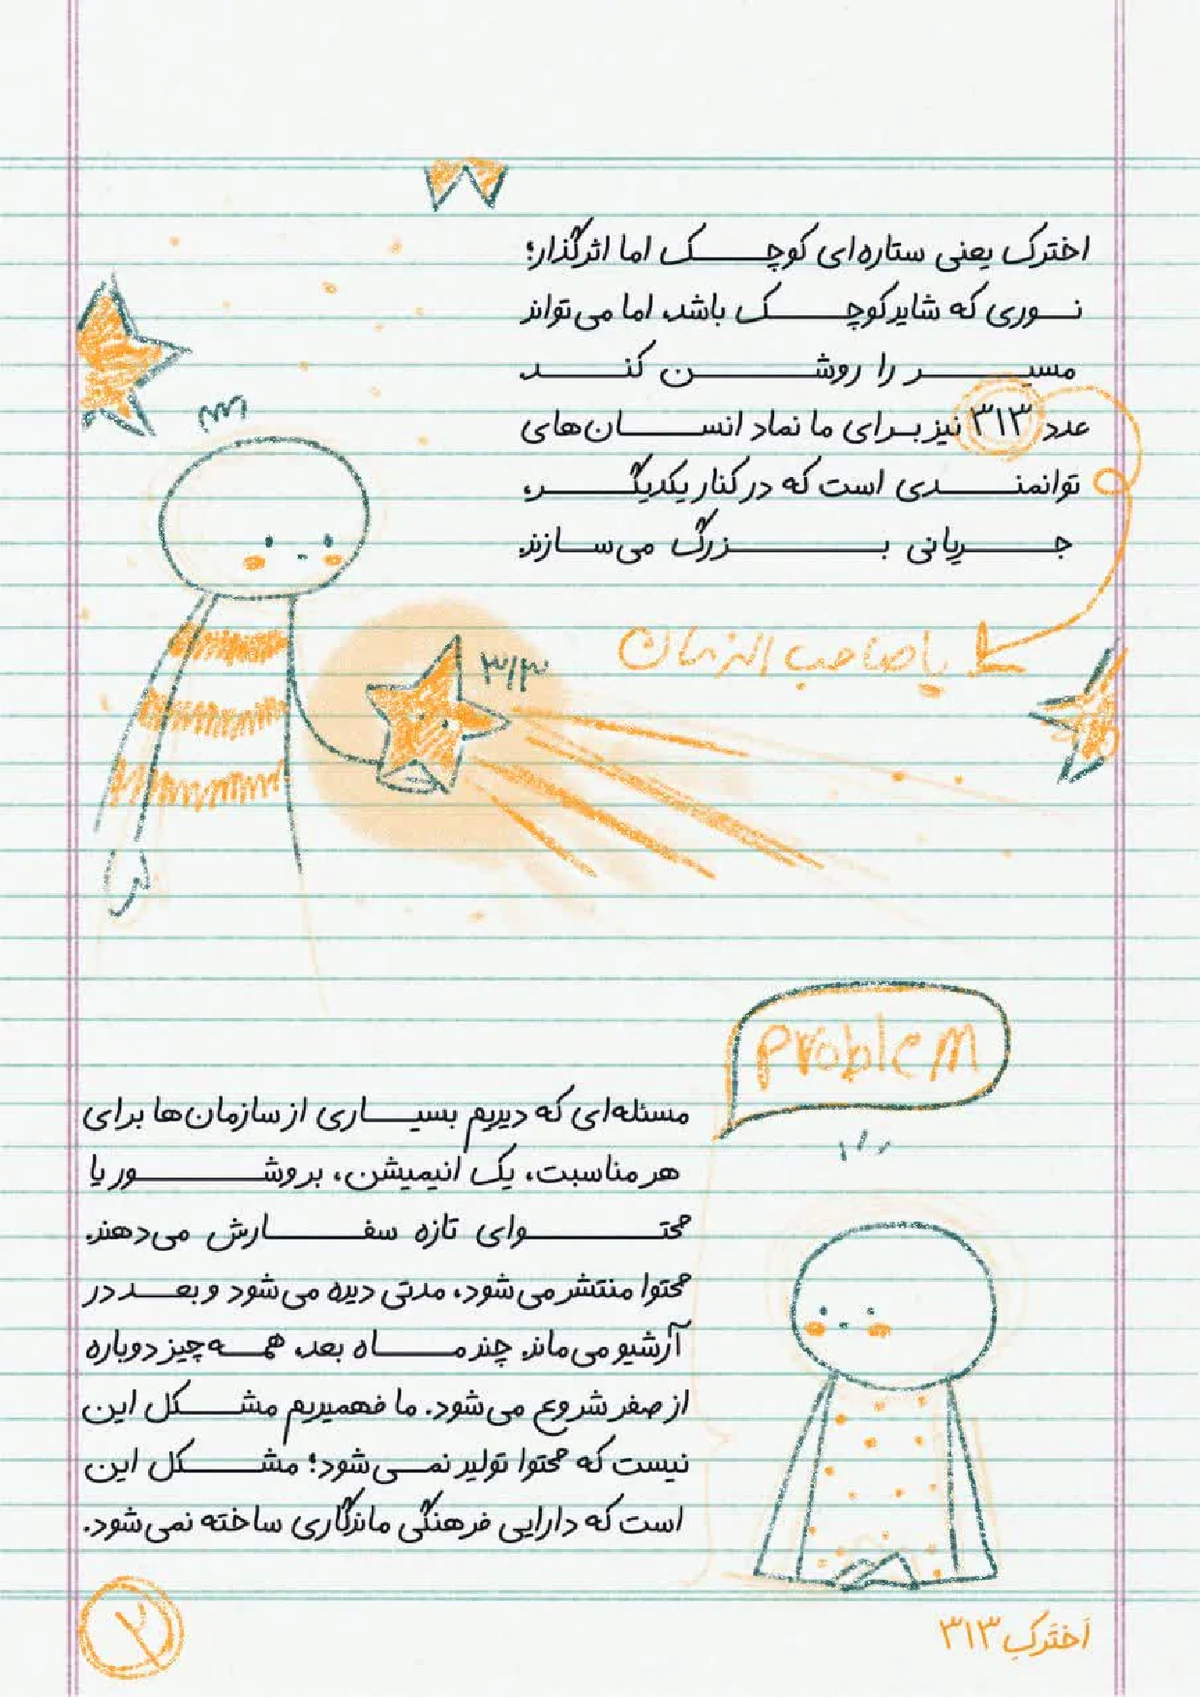 اخترک یعنی ستاره‌ای کوچک اما اثرگذار؛
نوری که شاید کوچک باشد، اما می‌تواند
مسیر را روشن کند.
عدد ۳۱۳ نیز برای ما نماد انسان‌های
توانمندی است که در کنار یکدیگر،
جریانی بزرگ می‌سازند.
یا صاحب الزمان
۳۱۳
problem
مسئله‌ای که دیدیم بسیاری از سازمان‌ها برای
هر مناسبت، یک انیمیشن، بروشور یا
محتوای تازه سفارش می‌دهند.
محتوا منتشر می‌شود، مدتی دیده می‌شود و بعد در
آرشیو می‌ماند. چند ماه بعد، همه چیز دوباره
از صفر شروع می‌شود. ما فهمیدیم مشکل این
نیست که محتوا تولید نمی‌شود؛ مشکل این
است که دارایی فرهنگی ماندگاری ساخته نمی‌شود.
۲
اَختَرکِ ۳۱۳